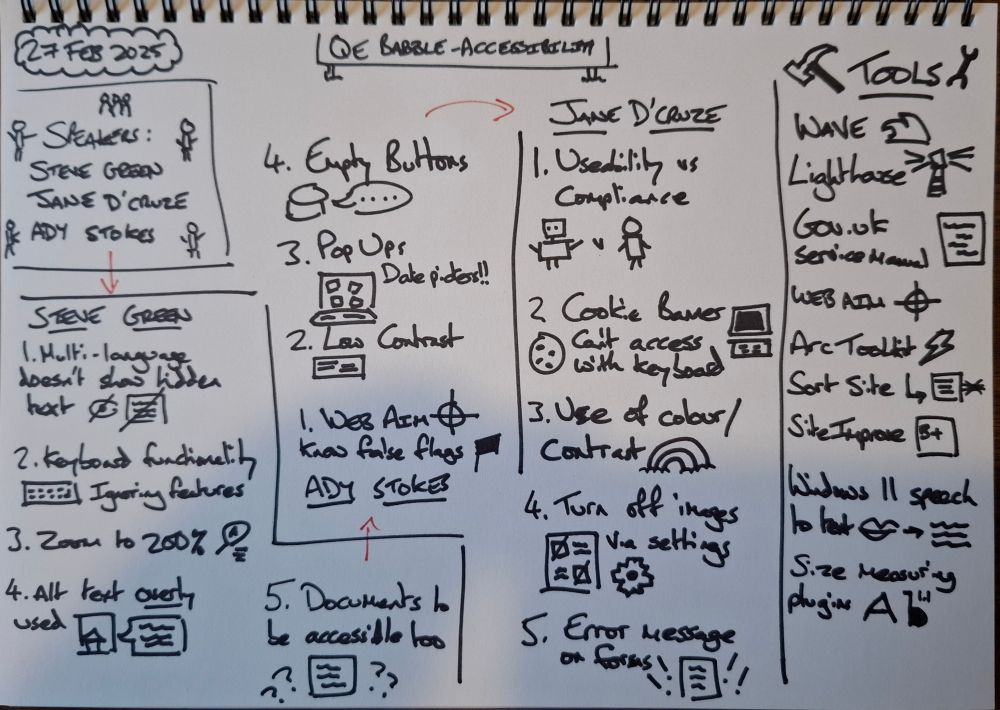 27 FEB 2025
QE BABBLE-ACCESSIBILITY
SPEAKERS:
STEVE GREEN
JANE D'CRUZE
ADY STOKES
STEVE GREEN
1. Multi-language
doesn't show hidden
text
2. Keyboard functionality
Ignoring features
3. Zoom to 200%
4. Alt text overly
used
5. Documents to
be accessible too
?? ??
ADY STOKES
1. WEB AIM
know false flags
2. Low Contrast
3. Pop Ups
Date pickers!!
4. Empty Buttons
JANE D'CRUZE
1. Useability vs
Compliance
v
2 Cookie Banner
Can't access
with keyboard
3. Use of colour/
Contrast
4. Turn off images
via settings
5. Error message
on forms
TOOLS
WAVE
Lighthouse
Gov.uk
service manual
WEB AIM
Arc Toolkit
Sort Site
SiteImprove B+
Windows 11 speech
to text
Size measuring
plugins A